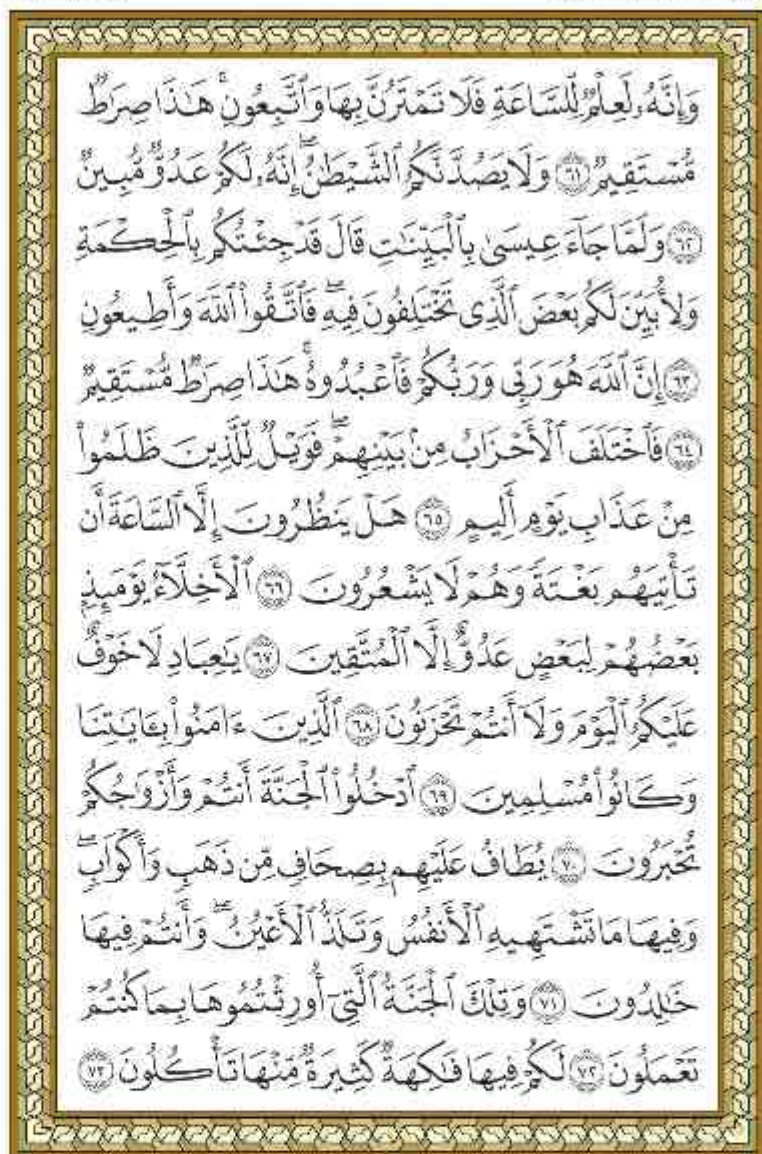 وَإِنَّهُۥ لَعِلۡمٞ لِّلسَّاعَةِ فَلَا تَمۡتَرُنَّ بِهَا وَٱتَّبِعُونِۚ هَٰذَا صِرَٰطٞ
مُّسۡتَقِيمٞ ٦١ وَلَا يَصُدَّنَّكُمُ ٱلشَّيۡطَٰنُۖ إِنَّهُۥ لَكُمۡ عَدُوّٞ مُّبِينٞ
٦٢ وَلَمَّا جَآءَ عِيسَىٰ بِٱلۡبَيِّنَٰتِ قَالَ قَدۡ جِئۡتُكُم بِٱلۡحِكۡمَةِ
وَلِأُبَيِّنَ لَكُم بَعۡضَ ٱلَّذِي تَخۡتَلِفُونَ فِيهِۖ فَٱتَّقُواْ ٱللَّهَ وَأَطِيعُونِ
٦٣ إِنَّ ٱللَّهَ هُوَ رَبِّي وَرَبُّكُمۡ فَٱعۡبُدُوهُۚ هَٰذَا صِرَٰطٞ مُّسۡتَقِيمٞ
٦٤ فَٱخۡتَلَفَ ٱلۡأَحۡزَابُ مِنۢ بَيۡنِهِمۡۖ فَوَيۡلٞ لِّلَّذِينَ ظَلَمُواْ
مِنۡ عَذَابِ يَوۡمٍ أَلِيمٍ ٦٥ هَلۡ يَنظُرُونَ إِلَّا ٱلسَّاعَةَ أَن
تَأۡتِيَهُم بَغۡتَةٗ وَهُمۡ لَا يَشۡعُرُونَ ٦٦ ٱلۡأَخِلَّآءُ يَوۡمَئِذِۭ
بَعۡضُهُمۡ لِبَعۡضٍ عَدُوٌّ إِلَّا ٱلۡمُتَّقِينَ ٦٧ يَٰعِبَادِ لَا خَوۡفٌ
عَلَيۡكُمُ ٱلۡيَوۡمَ وَلَآ أَنتُمۡ تَحۡزَنُونَ ٦٨ ٱلَّذِينَ ءَامَنُواْ بِـَٔايَٰتِنَا
وَكَانُواْ مُسۡلِمِينَ ٦٩ ٱدۡخُلُواْ ٱلۡجَنَّةَ أَنتُمۡ وَأَزۡوَٰجُكُمۡ
تُحۡبَرُونَ ٧٠ يُطَافُ عَلَيۡهِم بِصِحَافٖ مِّن ذَهَبٖ وَأَكۡوَابٖۖ
وَفِيهَا مَا تَشۡتَهِيهِ ٱلۡأَنفُسُ وَتَلَذُّ ٱلۡأَعۡيُنُۖ وَأَنتُمۡ فِيهَا
خَٰلِدُونَ ٧١ وَتِلۡكَ ٱلۡجَنَّةُ ٱلَّتِيٓ أُورِثۡتُمُوهَا بِمَا كُنتُمۡ
تَعۡمَلُونَ ٧٢ لَكُمۡ فِيهَا فَٰكِهَةٞ كَثِيرَةٞ مِّنۡهَا تَأۡكُلُونَ ٧٣